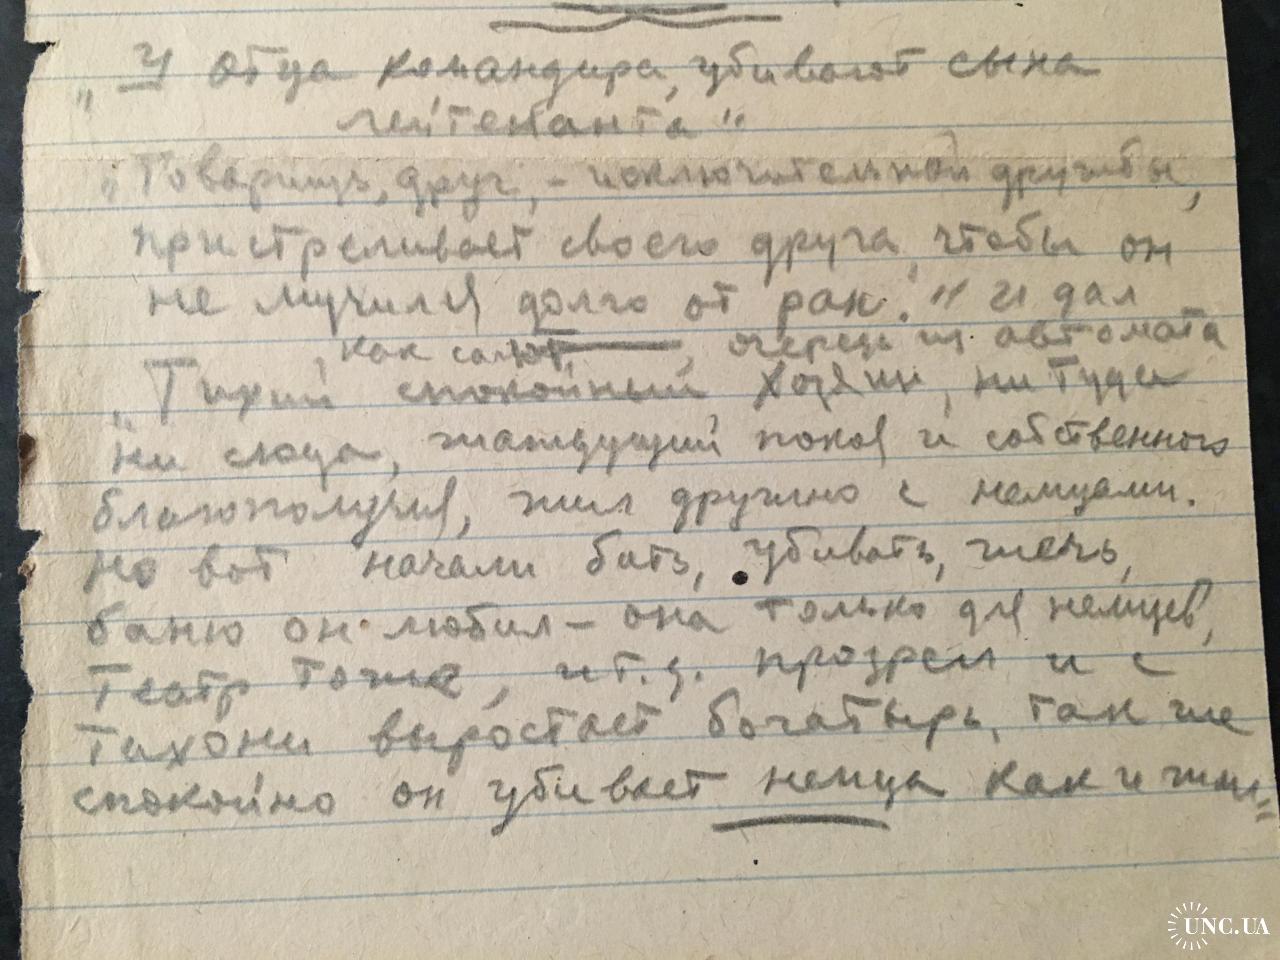 „У отца командира, убивают сына
лейтенанта"
„Товарищ, друг, - исключительной дружбы,
пристреливает своего друга, чтобы он
не мучился долго от ран." и дал
, как салют, очередь из автомата
„Тихий спокойный хозяин, ни туда
ни сюда, жаждущий покоя и собственного
благополучия, жил дружно с немцами.
Но вот начали бить, убивать, жечь,
баню он любил - она только для немцев,
театр тоже, и т.д. прозрел и с
Тихони выростает богатырь, так же
спокойно он убивает немца как и жил"
UNC.UA